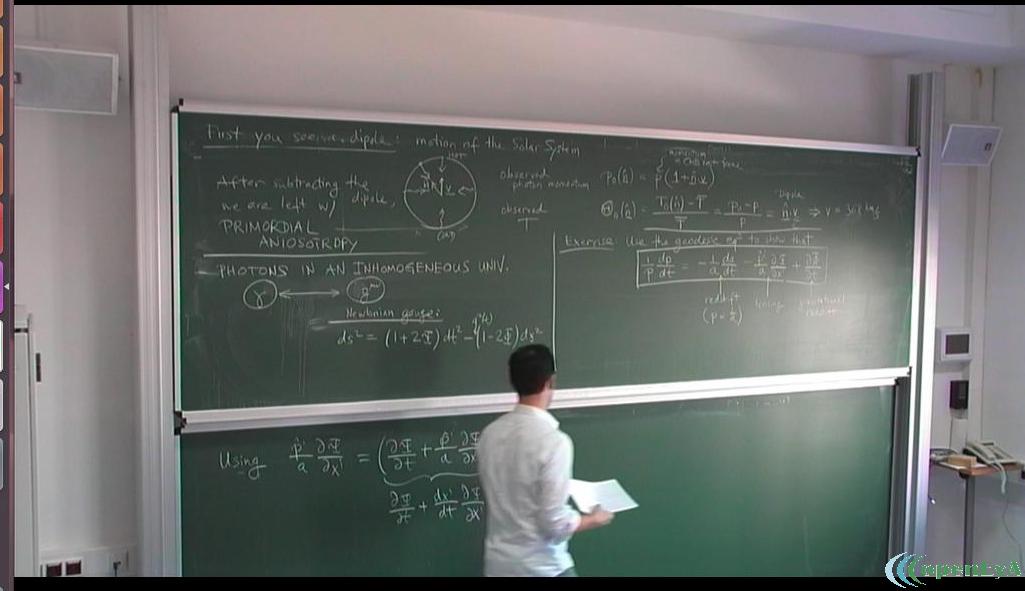 First you see dipole: motion of the Solar System
After subtracting the dipole,
we are left w/
PRIMORDIAL
ANIOSOTROPY
observed
photon momentum
observed
T
p₀(n̂) = p(1+n̂·v)
Θ₀(n̂) = (T₀(n̂) - T̄)/T̄ = (p₀ - p)/p = n̂·v ⇒ v = 368 km/s
Dipole
PHOTONS IN AN INHOMOGENEOUS UNIV.
γ ⟷ g^μν
Newtonian gauge:
ds² = (1+2Φ)dt² - a²(t)(1-2Φ)dx²
Exercise Use the geodesic eqⁿ to show that
1/p dp/dt = -1/a da/dt - p̂ⁱ/a ∂Φ/∂xⁱ + ∂Φ/∂t
redshift
(p ∝ 1/a)
Using p̂ⁱ/a ∂Φ/∂xⁱ = (∂Φ/∂t + p̂ⁱ/a ∂Φ/∂xⁱ
∂Φ/∂t + dxⁱ/dt ∂Φ/∂xⁱ
openEyA